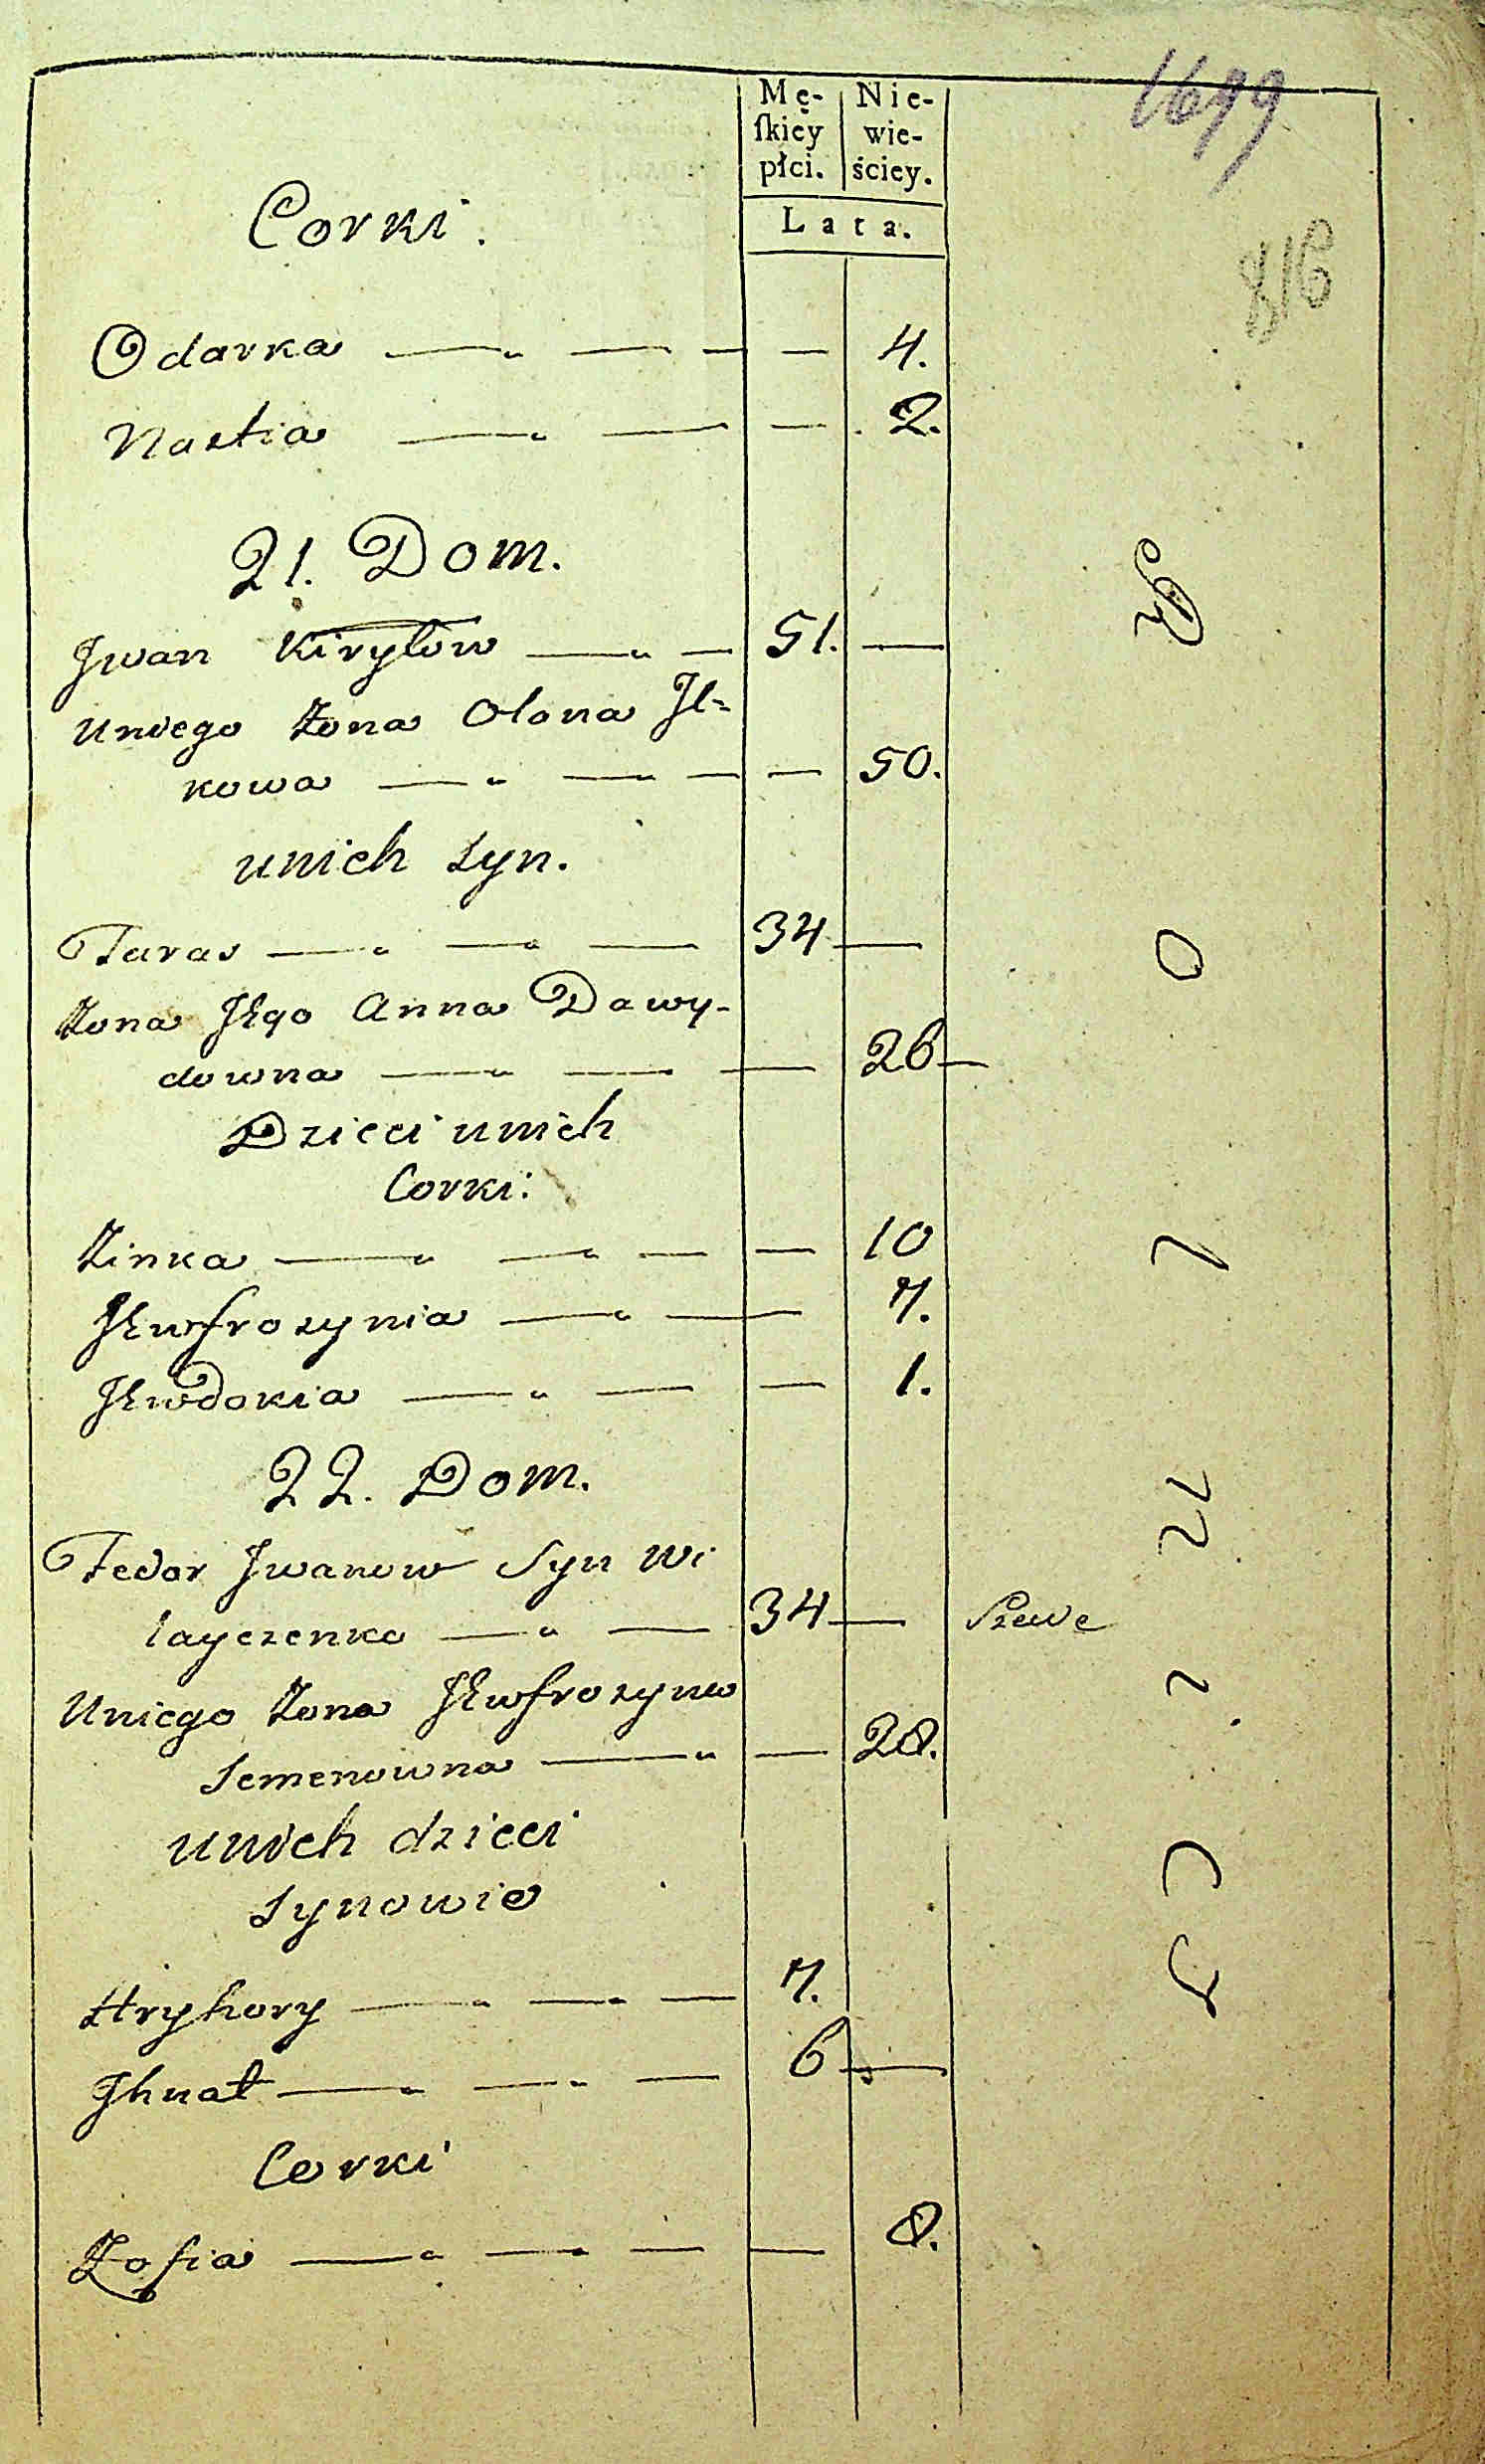 1699
816
Mę-
ſkiey
płci.
Nie-
wie-
ściey.
Lata.
Corki.
Odarka — — — — 4.
Nastia — — — 2.
21. Dom.
Jwan Kiryłow — — 51. —
Uniego Żona Olona Jl=
kowa — — — — 50.
unich Syn.
Taras — — — 34 —
Żona Jego Anna Dawy-
downa — — — 26 —
Dzieci unich
Corki:
Zinka — — — — 10
Jewfrozynia — — 7.
Jewdokia — — — 1.
22. Dom.
Fedor Jwanow Syn Wi
layczenko — — 34 — Szewc
Uniego Żona Jewfrozyna
Semenowna — — 28.
unich dzieci
Synowie
Hryhory — — — 7.
Jhnat — — — 6 —
Corki
Zofia — — — — 8.